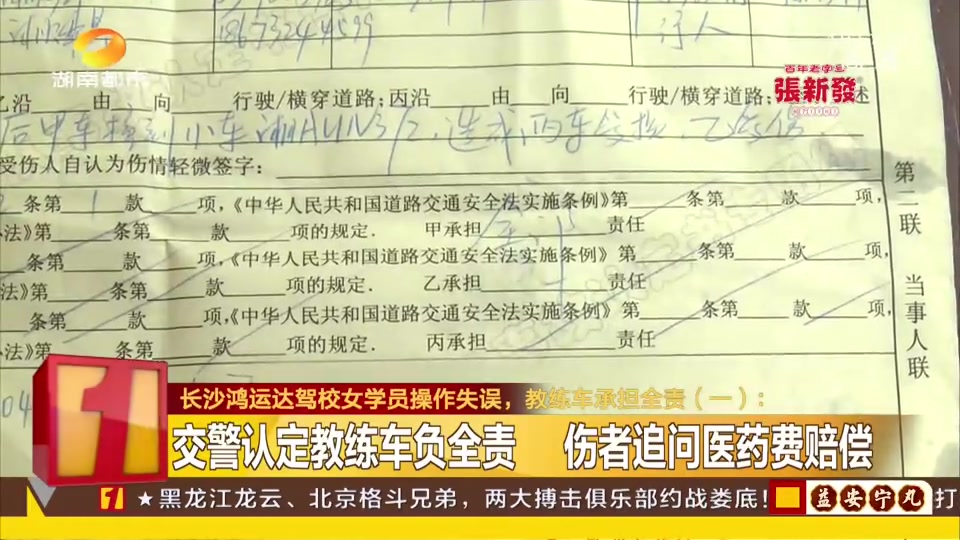 湖南都市
百年老字号
張新發
行人
乙沿____由____向____行驶/横穿道路；丙沿____由____向____行驶/横穿道路；
述
受伤人自认为伤情轻微签字：
条第 1 款____项，《中华人民共和国道路交通安全法实施条例》第____条第____款____项，
办法》第____条第____款____项的规定． 甲承担 全部 责任
条第____款____项，《中华人民共和国道路交通安全法实施条例》第____条第____款____项，
法》第____条第____款____项的规定． 乙承担____责任
条第____款____项，《中华人民共和国道路交通安全法实施条例》第____条第____款____项，
办法》第____条第____款____项的规定． 丙承担____责任
第二联 当事人联
04
1
长沙鸿运达驾校女学员操作失误，教练车承担全责（一）：
交警认定教练车负全责 伤者追问医药费赔偿
1 ★黑龙江龙云、北京格斗兄弟，两大搏击俱乐部约战娄底！ 益安宁丸 打